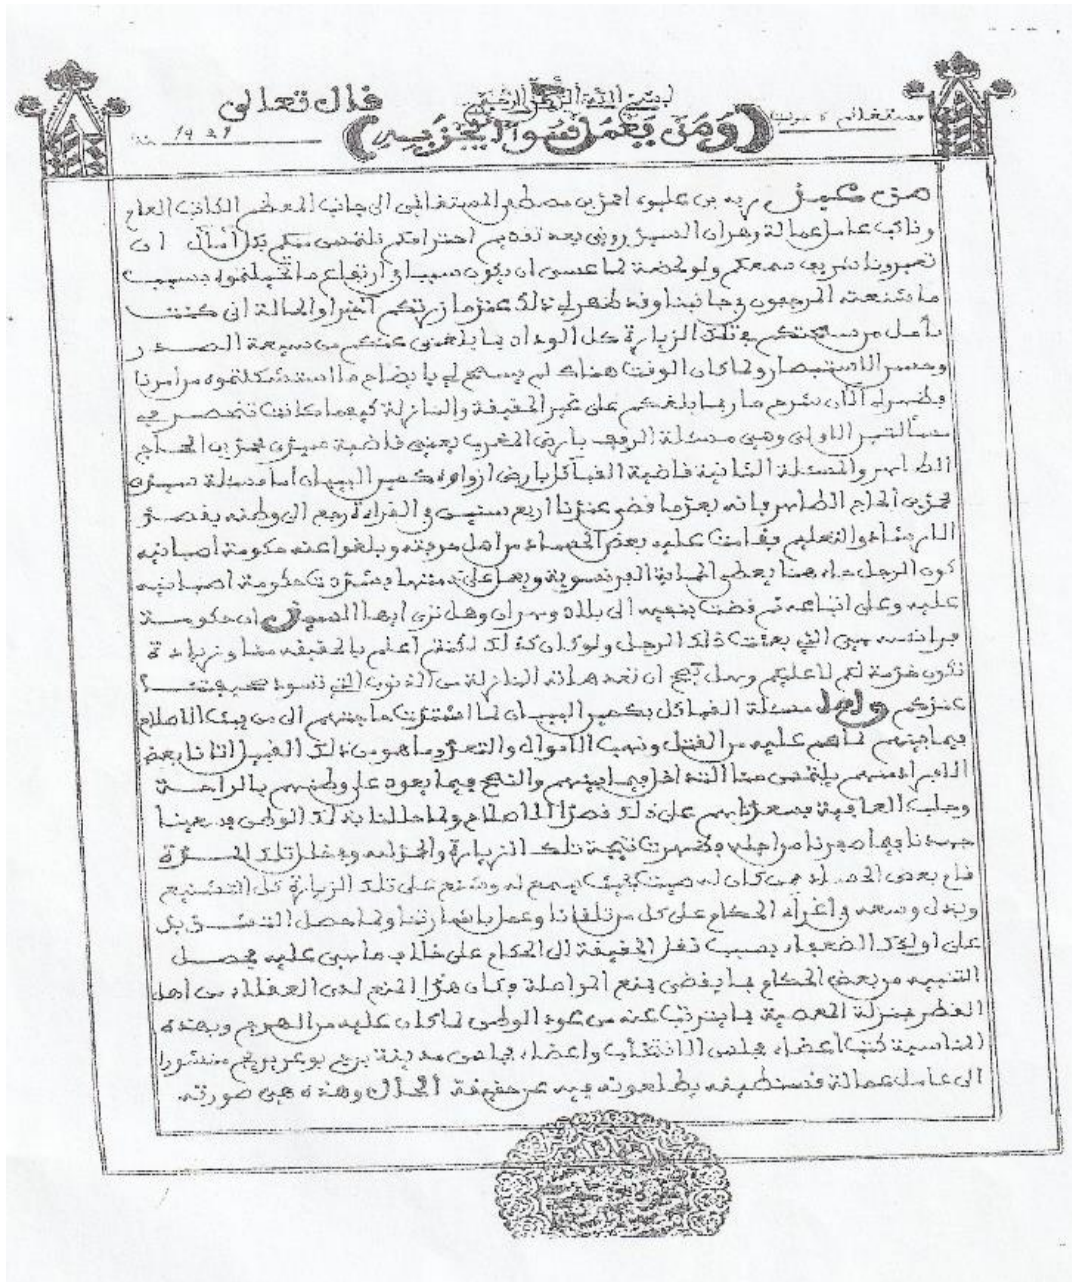 بسم الله الرحمن الرحيم
قال تعالى
مستغانم
(ومن يعمل سوءا يجز به)
سنة 1921
من عبد ربه بن عليوه احمد بن مصطفى المستغانمي الى جانب المعظم الكاتب العام
ونائب عامل عمالة وهران السيد روني بعد تقديم احترامكم نلتمس منكم بكل أمال ان
تعيرونا شريف سمعكم ولو لحضة لما عسى ان يكون سببا في ارتفاع ما تخيلتموه بسبب
ما شنعته المرجبون في جانبنا وقد ظهر لي ذلك عندما زرتكم أخيرا والحالة اني كنت
نأمل من ساحتكم في تلك الزيارة كل الوداد بما بلغني عنكم من سعة الصدر
وحسن الاستبصار ولما كان الوقت هناك لم يسمح لي بايضاح ما استشكلتموه من امرنا
فظهر لي الآن شرح ما ربما بلغكم على غير الحقيقة والنازلة كيفما كانت تنحصر في
مسألتين الاولى وهي مسئلة الريف بارض المغرب يعني قاضية سيدي محمد بن الحاج
الطاهر والمسئلة الثانية قاضية القبائل بارض ازواوه كمير البيبان أما مسئلة سيدي
محمد بن الحاج الطاهر فانه بعد ما قضى عندنا اربع سنين في القراءة رجع الى وطنه بقصد
الارشاد والتعليم فقامت عليه بعض الحساد من اهل حرفته وبلغوا عنه حكومة اصبانيه
كون الرجل جاء هنا يعطي الحماية الفرنسوية ويعمل على ذمتها فشددت حكومة اصبانيه
عليه وعلى اتباعه ثم قضت بنفيه الى بلاد وهران وهل ترى أيها السيد ان حكومة
فرانسه هي التي بعثت ذلك الرجل ولو كان كذلك لكنتم أعلم بالحقيقه منا وزيادة
تكون خدمة لكم لا عليكم وهل يصح ان نعد هاته النازلة من الذنوب التي تسود صحيفتنا؟
عندكم وأما مسئلة القبائل بكمير البيبان لما اشتدت حاجتهم الى من يبث الاصلاح
فيما بينهم لما هم عليه من القتل ونهب الاموال والتعدي وما هو من ذلك القبيل اتانا بعض
الافراد منهم يلتمس منا التداخل فيما بينهم والنصح فيما يعود على وطنهم بالراحة
وجلب العافية فسعدناهم على ذلك قصدا للاصلاح ولما حللنا بذلك الوطن سعينا
جهدنا فيما صيرنا من اجله فظهرت نتيجة تلك الزيارة والحمد لله وبخلال تلك المدة
قام بعض الحساد ممن كان له صيت بحيث يسمع له وشنع على تلك الزيارة كل التشنيع
وبذل وسعه في اغراء الحكام على كل من تلقانا وعمل باشارتنا ولما حصل التشديد
على اولئك الضعفاء بسبب نقل الحقيقة الى الحكام على خلاف ما هي عليه فحصل
التنبيه من بعض الحكام بما يقضي بمنع المواصلة وكان هذا المنع لدى العقلاء من اهل
القطر بمنزلة المصيبة بما يترتب عنه من عود الوطن لما كان عليه من الهرج وبهذه
المناسبة كتب أعضاء مجلس الانتخاب واعضاء مجلس مدينة برج بوعريريج منشورا
الى عامل عمالة قسنطينه يطلعونه فيه عن حقيقة الحال وهذه هي صورته